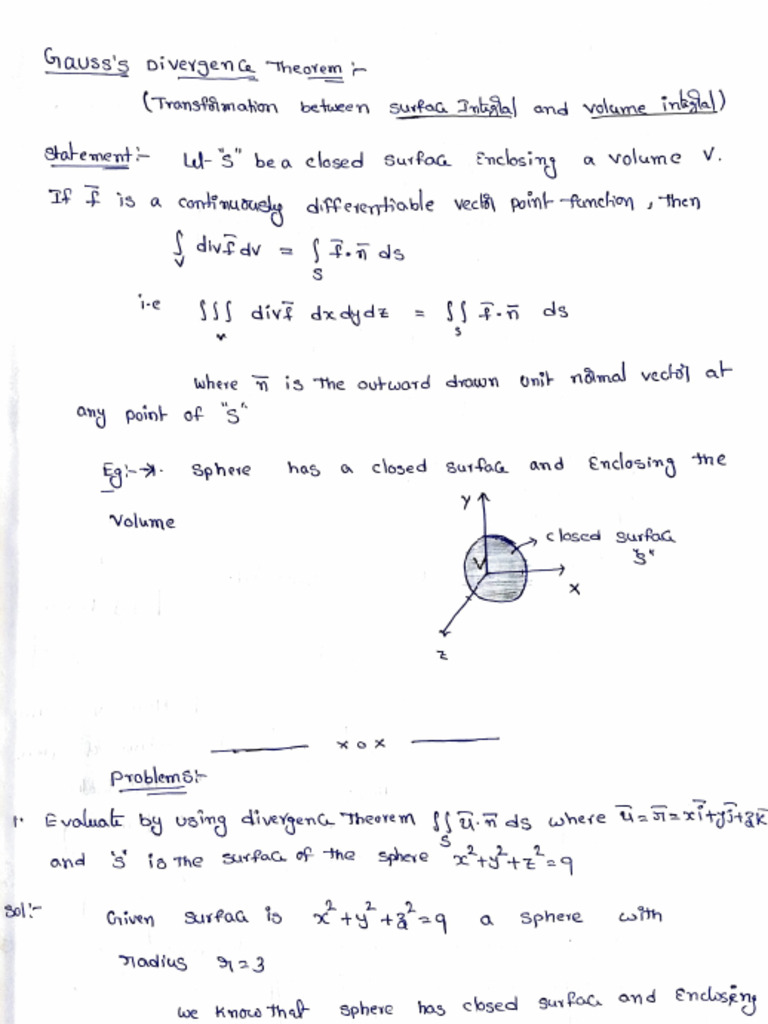 Gauss's Divergence Theorem :-
(Transformation between surface Integral and volume integral)
Statement:- Let "S" be a closed surface Enclosing a volume V.
If f̅ is a continuously differentiable vector point function, then
∫_V div f̅ dv = ∫_S f̅·n̅ ds
i.e ∫∫∫_v div f̅ dx dy dz = ∫∫_s f̅·n̅ ds
where n̅ is the outward drawn unit normal vector at
any point of "S"
Eg:→ sphere has a closed surface and Enclosing the
Volume
Y
closed surface
"S"
V
X
Z
x o x
Problems:-
1. Evaluate by using divergence Theorem ∫∫_S u̅·n̅ ds where u̅ = r̅ = xi̅+yj̅+zk̅
and 'S' is the surface of the sphere x²+y²+z²=9
Sol:- Given surface is x²+y²+z²=9 a sphere with
radius r=3
we know that sphere has closed surface and Enclosing